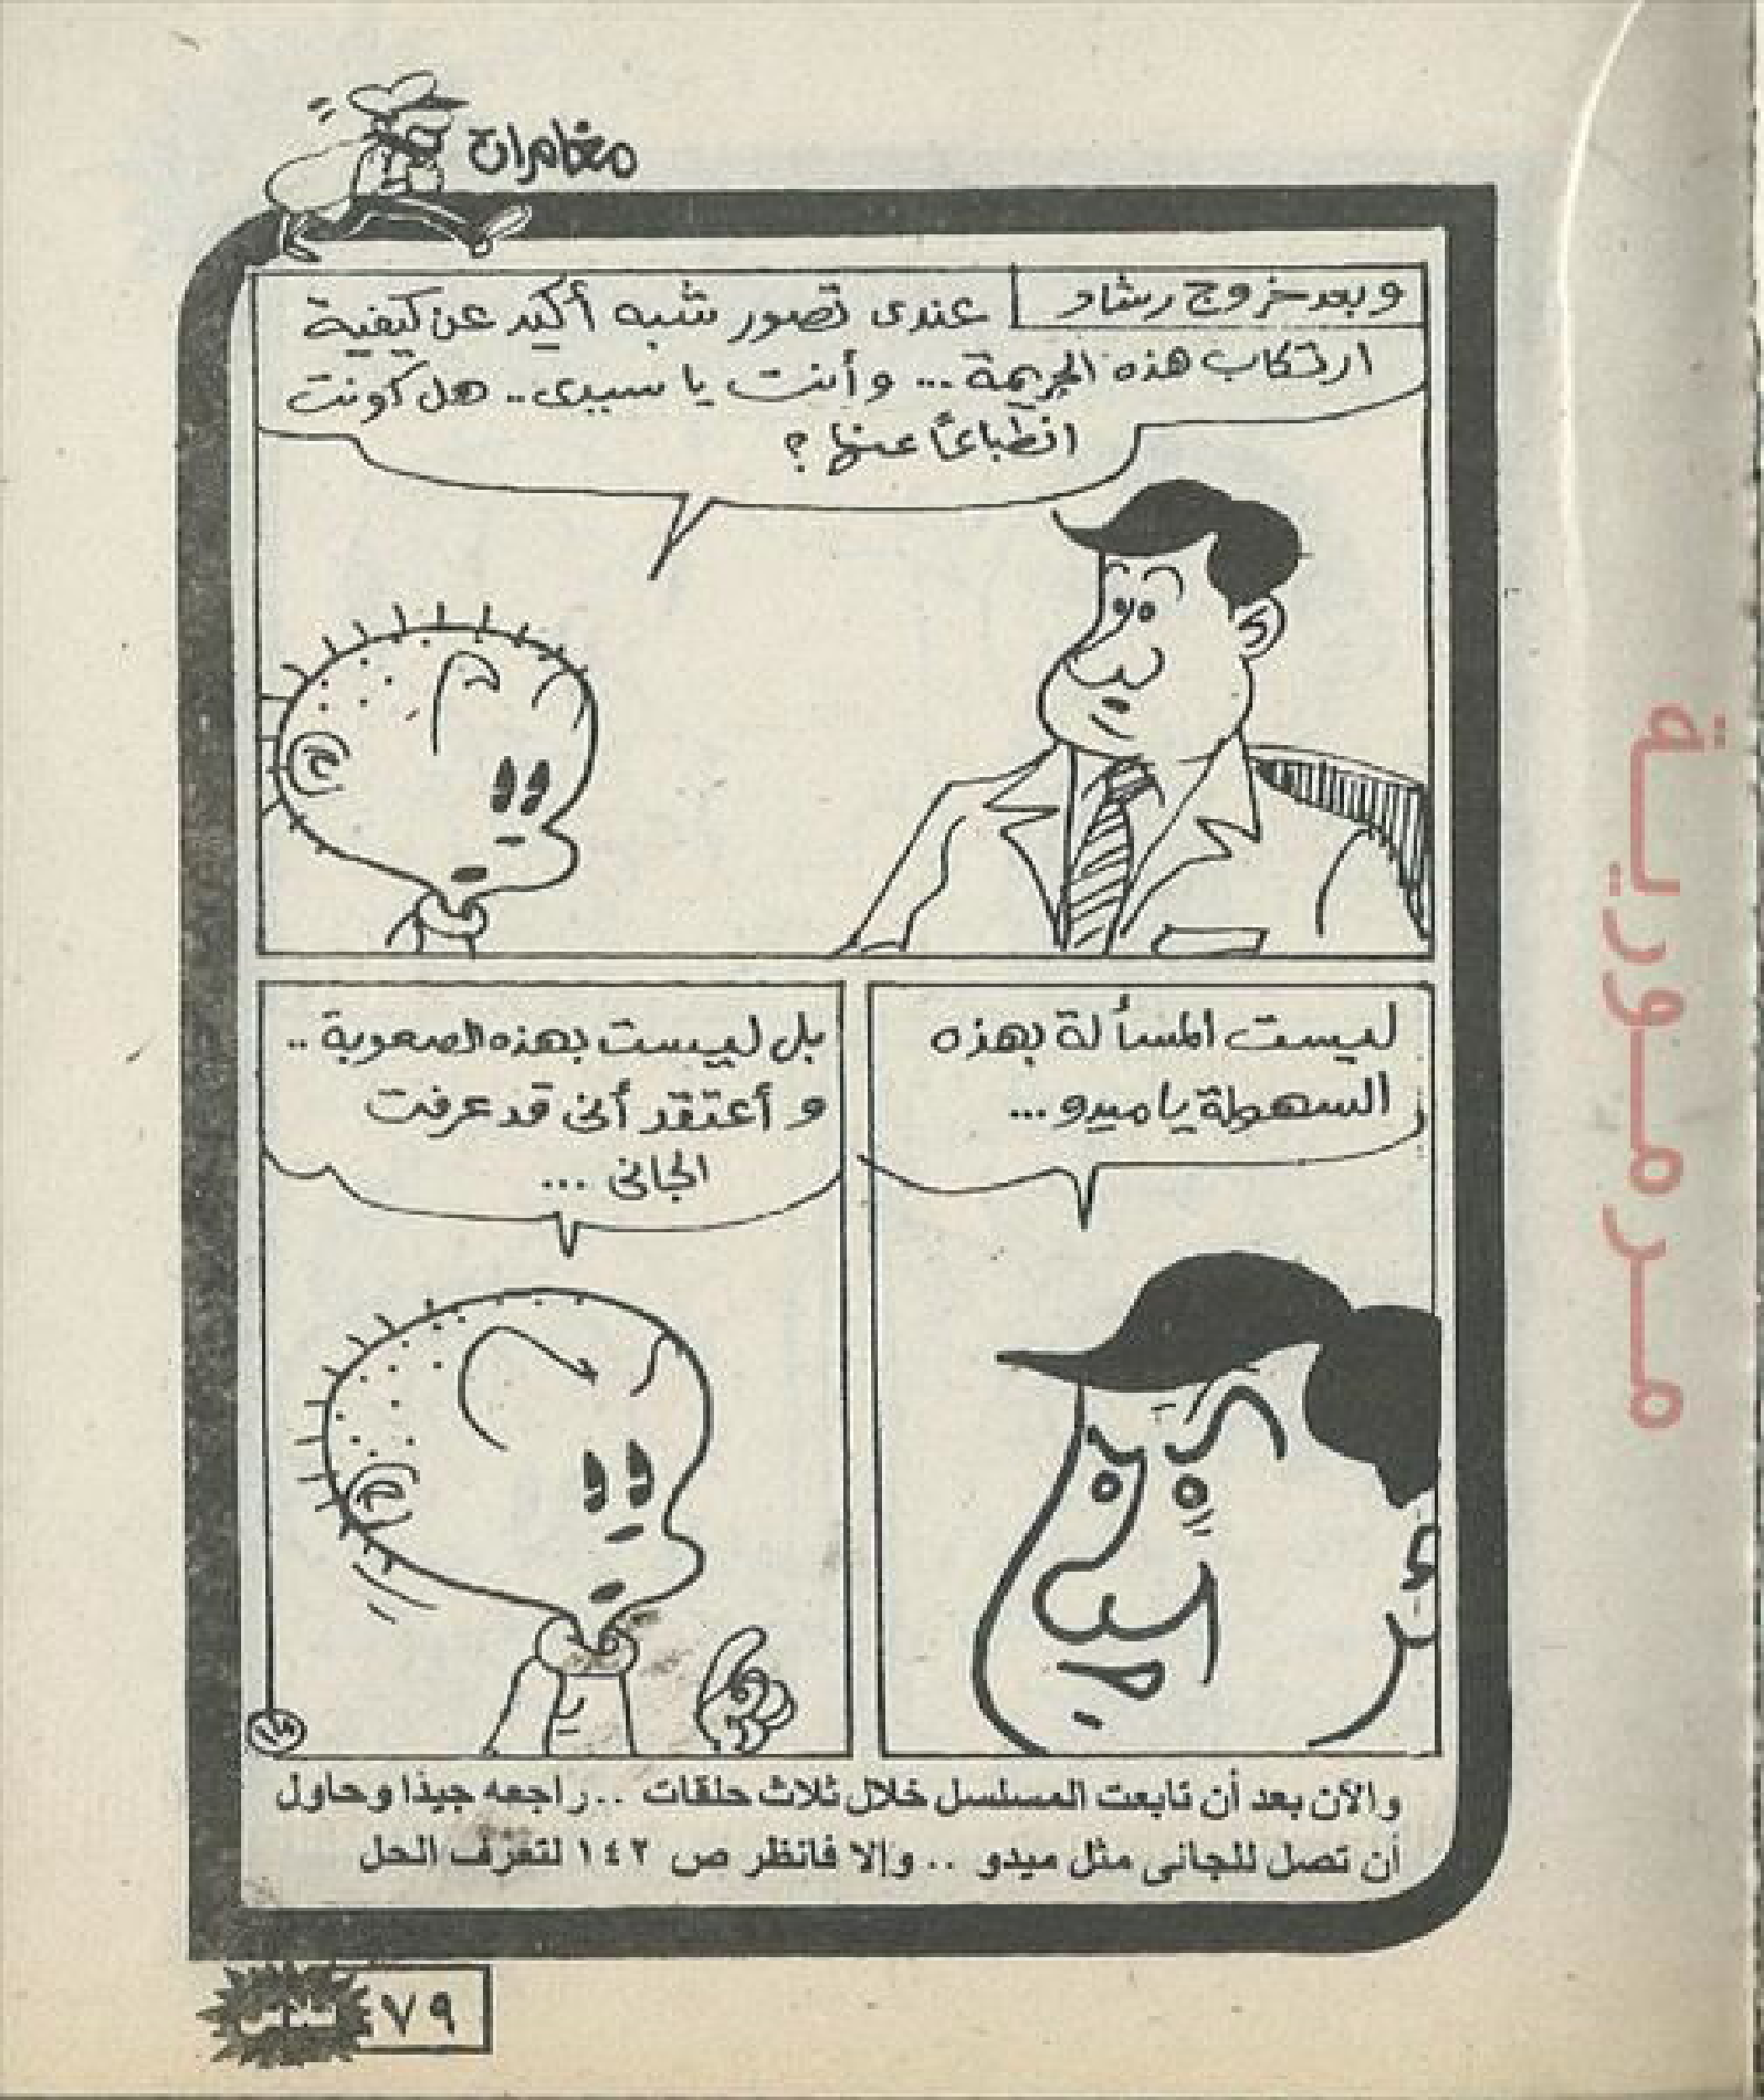 مغامرات
وبعد خروج رشاد
عندى تصور شبه أكيد عن كيفية
ارتكاب هذه الجريمة... وأنت يا سيدى.. هل كونت
انطباعًا عنها؟
ليست المسألة بهذه
السهولة يا ميدو...
بل ليست بهذه الصعوبة..
وأعتقد أنى قد عرفت
الجانى...
١٤
والآن بعد أن تابعت المسلسل خلال ثلاث حلقات ..راجعه جيدًا وحاول
أن تصل للجانى مثل ميدو .. وإلا فانظر ص ١٤٢ لتعرف الحل
٧٩
مرمورية